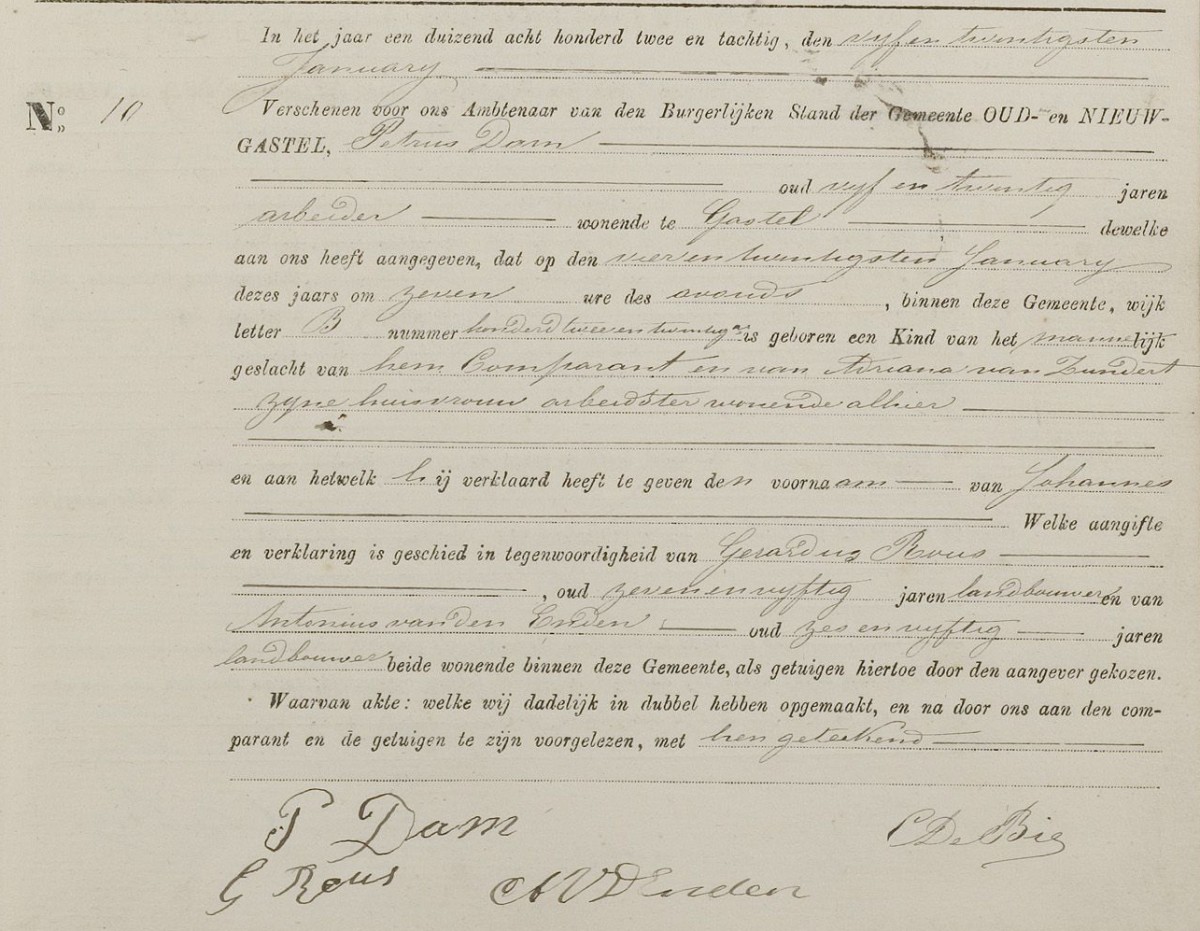 In het jaar een duizend acht honderd twee en tachtig, den vijfen twentigsten
January
No. 10
Verschenen voor ons Ambtenaar van den Burgerlijken Stand der Gemeente OUD- en NIEUW-
GASTEL, Petrus Dam
oud vijf en twentig jaren
arbeider wonende te Gastel dewelke
aan ons heeft aangegeven, dat op den vierentwentigsten January
dezes jaars om zeven ure des avonds, binnen deze Gemeente, wijk
letter B nummer honderdtweeentwintig a is geboren een Kind van het mannelijk
geslacht van hem Comparant en van Adriana van Zundert
zijne huisvrouw arbeidster wonende alhier
en aan hetwelk hij verklaard heeft te geven den voornaam van Johannes
Welke aangifte
en verklaring is geschied in tegenwoordigheid van Gerardus Rous
, oud zevenenvijftig jaren landbouwer en van
Antonius van den Enden oud zesenvijftig jaren
landbouwer beide wonende binnen deze Gemeente, als getuigen hiertoe door den aangever gekozen.
Waarvan akte: welke wij dadelijk in dubbel hebben opgemaakt, en na door ons aan den com-
parant en de getuigen te zijn voorgelezen, met hen geteekend
P Dam
C De Bie
G Rous
A V D Enden